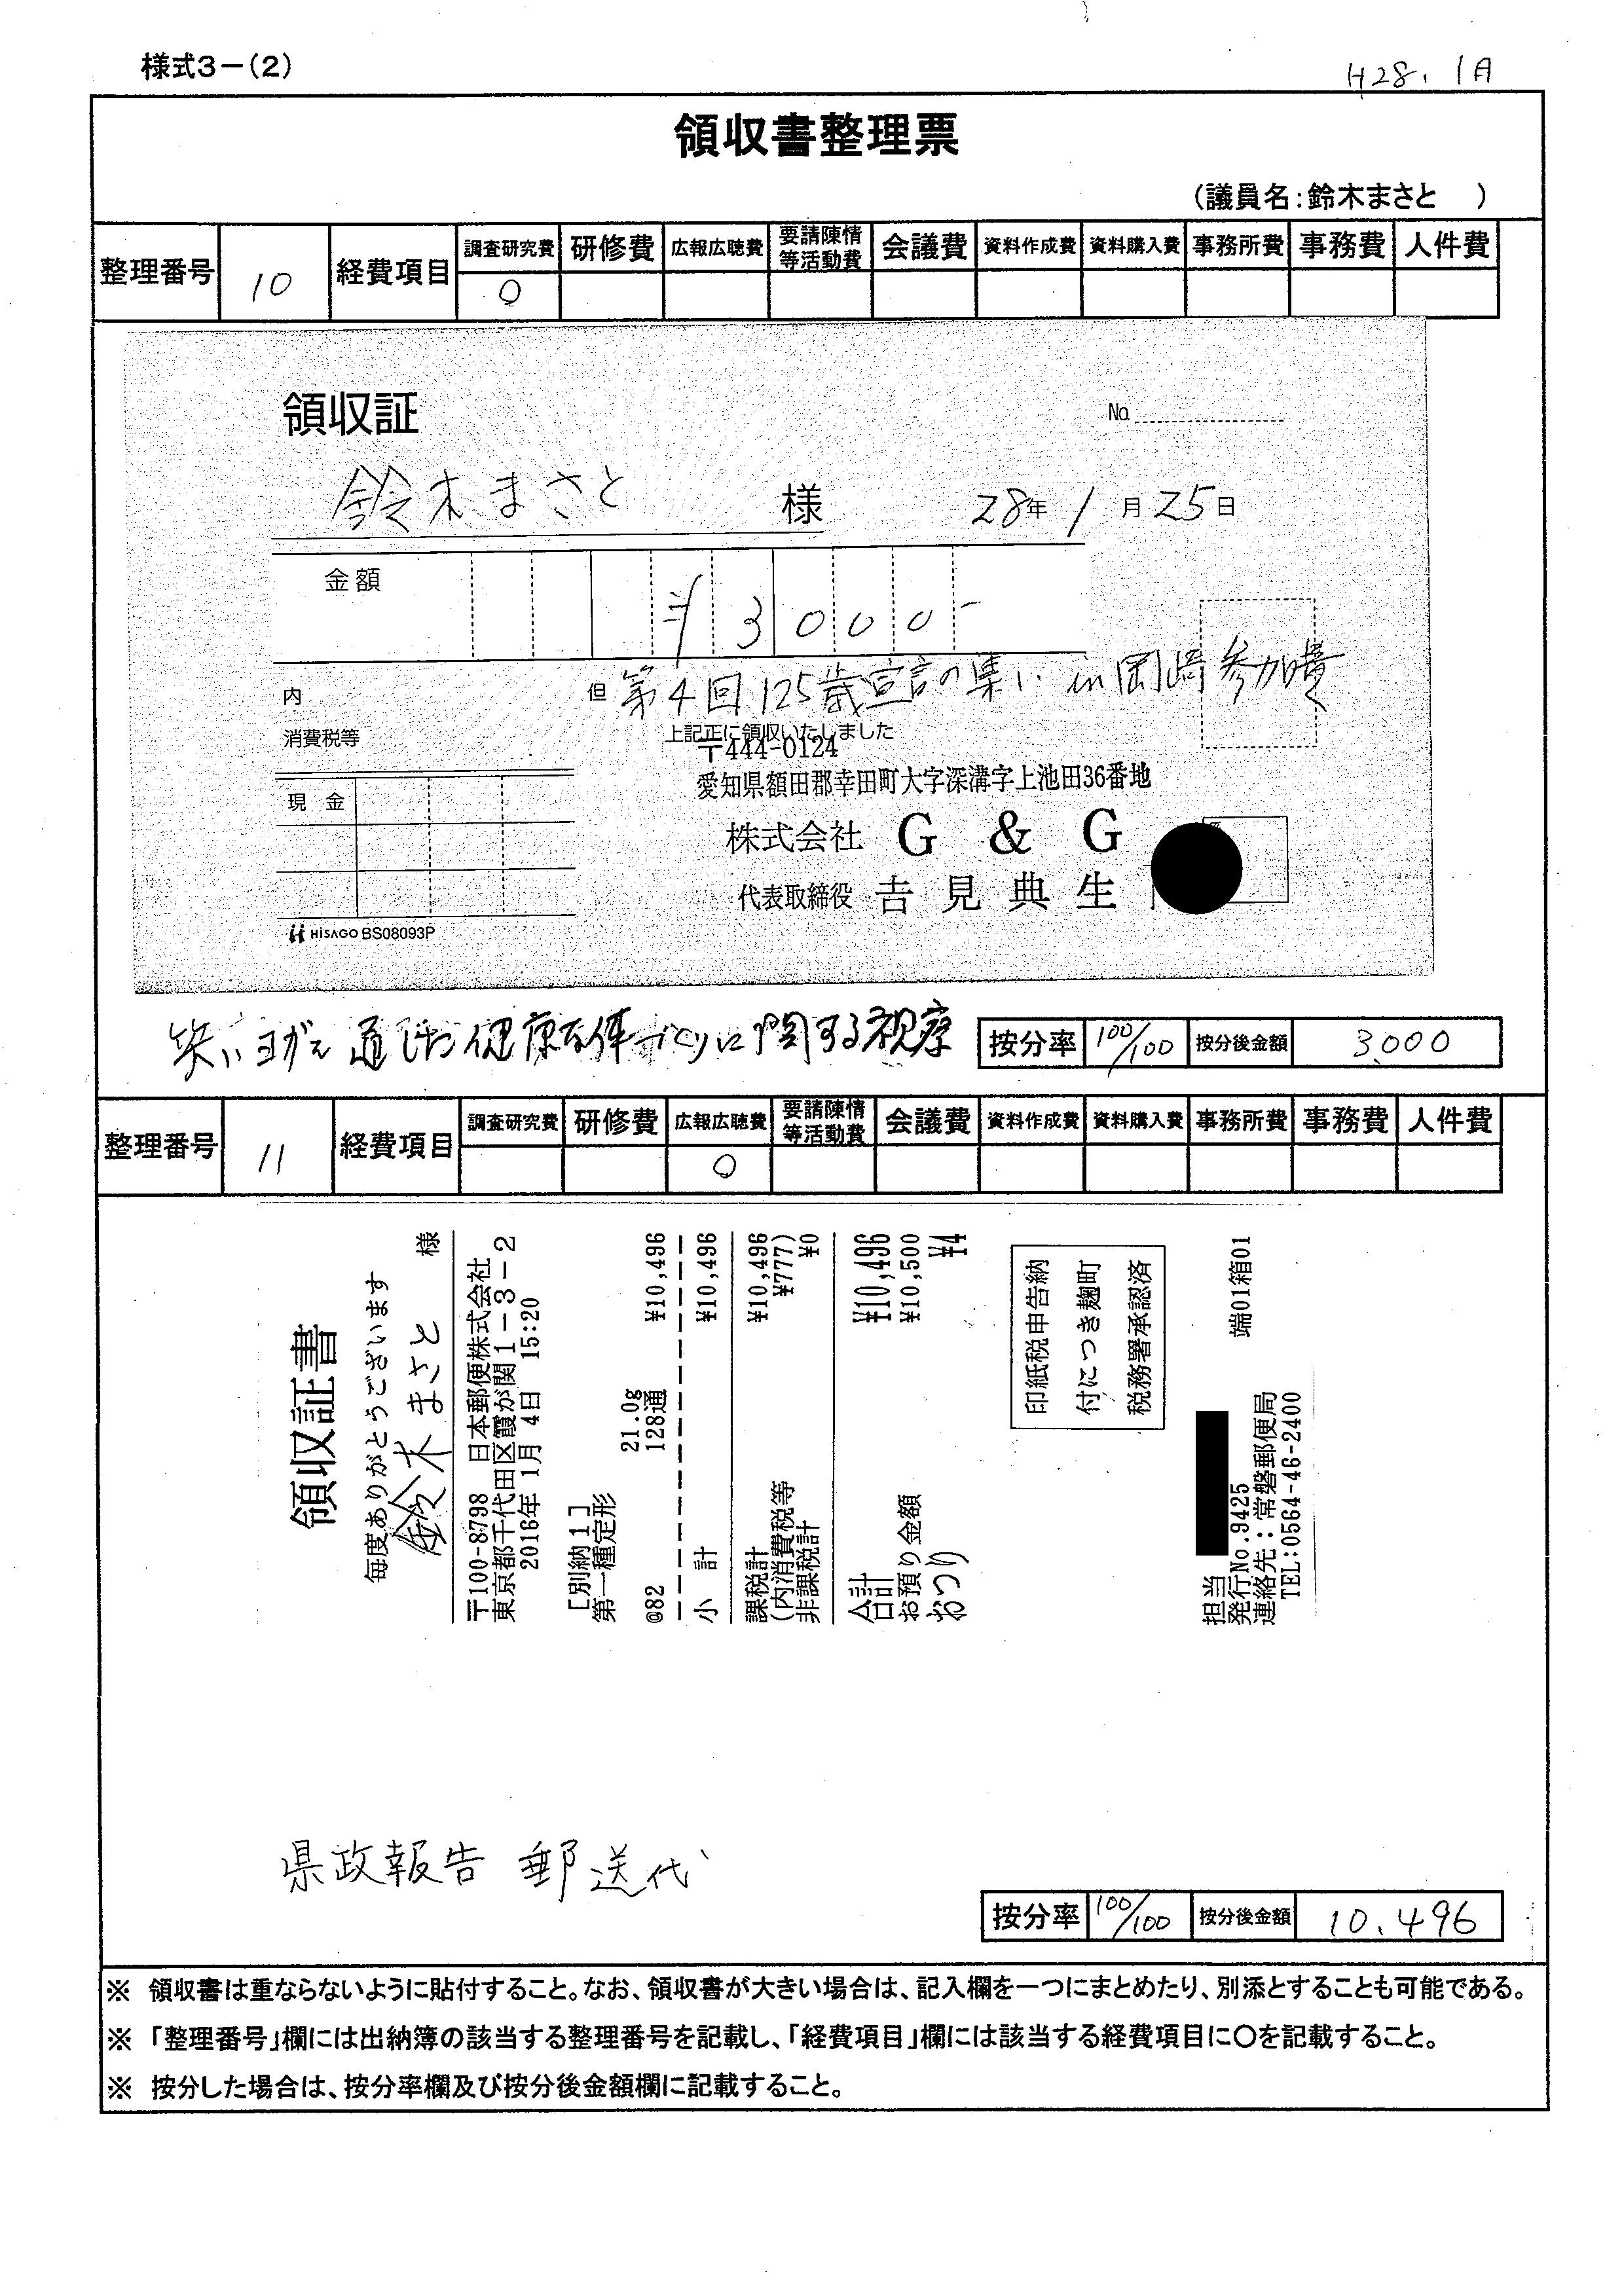 様式3－(2)
H28. 1月
領収書整理票
(議員名:鈴木まさと )
整理番号 10 経費項目 調査研究費 研修費 広報広聴費 要請陳情等活動費 会議費 資料作成費 資料購入費 事務所費 事務費 人件費
○
領収証
No.
鈴木まさと 様 28年 1月 25日
金額 ¥3000-
内 但 第4回125歳宣言の集い in 岡崎 参加費
消費税等 上記正に領収いたしました
〒444-0124
愛知県額田郡幸田町大字深溝字上池田36番地
現金
株式会社 G & G
代表取締役 吉見典生
HISAGO BS08093P
笑いヨガを通じた健康な体づくりに関する視察
按分率 100/100 按分後金額 3,000
整理番号 11 経費項目 調査研究費 研修費 広報広聴費 要請陳情等活動費 会議費 資料作成費 資料購入費 事務所費 事務費 人件費
○
領収証書
毎度ありがとうございます
鈴木まさと 様
〒100-8798 日本郵便株式会社
東京都千代田区霞が関1－3－2
2016年 1月 4日 15:20
[別納1]
第一種定形
21.0g
@82 128通 ¥10,496
小計 ¥10,496
課税計 ¥10,496
(内消費税等 ¥777)
非課税計 ¥0
合計 ¥10,496
お預り金額 ¥10,500
おつり ¥4
印紙税申告納
付につき麹町
税務署承認済
担当
発行No.9425 端01箱01
連絡先：常磐郵便局
TEL:0564-46-2400
県政報告 郵送代
按分率 100/100 按分後金額 10,496
※ 領収書は重ならないように貼付すること。なお、領収書が大きい場合は、記入欄を一つにまとめたり、別添とすることも可能である。
※ 「整理番号」欄には出納簿の該当する整理番号を記載し、「経費項目」欄には該当する経費項目に○を記載すること。
※ 按分した場合は、按分率欄及び按分後金額欄に記載すること。